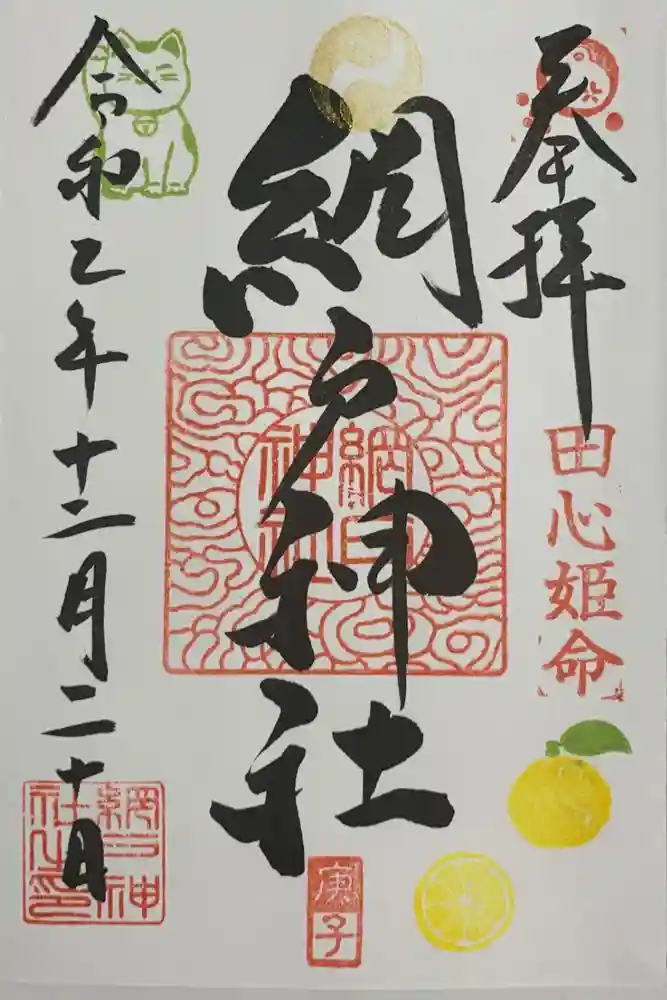 奉拝
田心姫命
網戸神社
網戸
神社
庚子
令和二年十二月二十日
網戸神
社之印